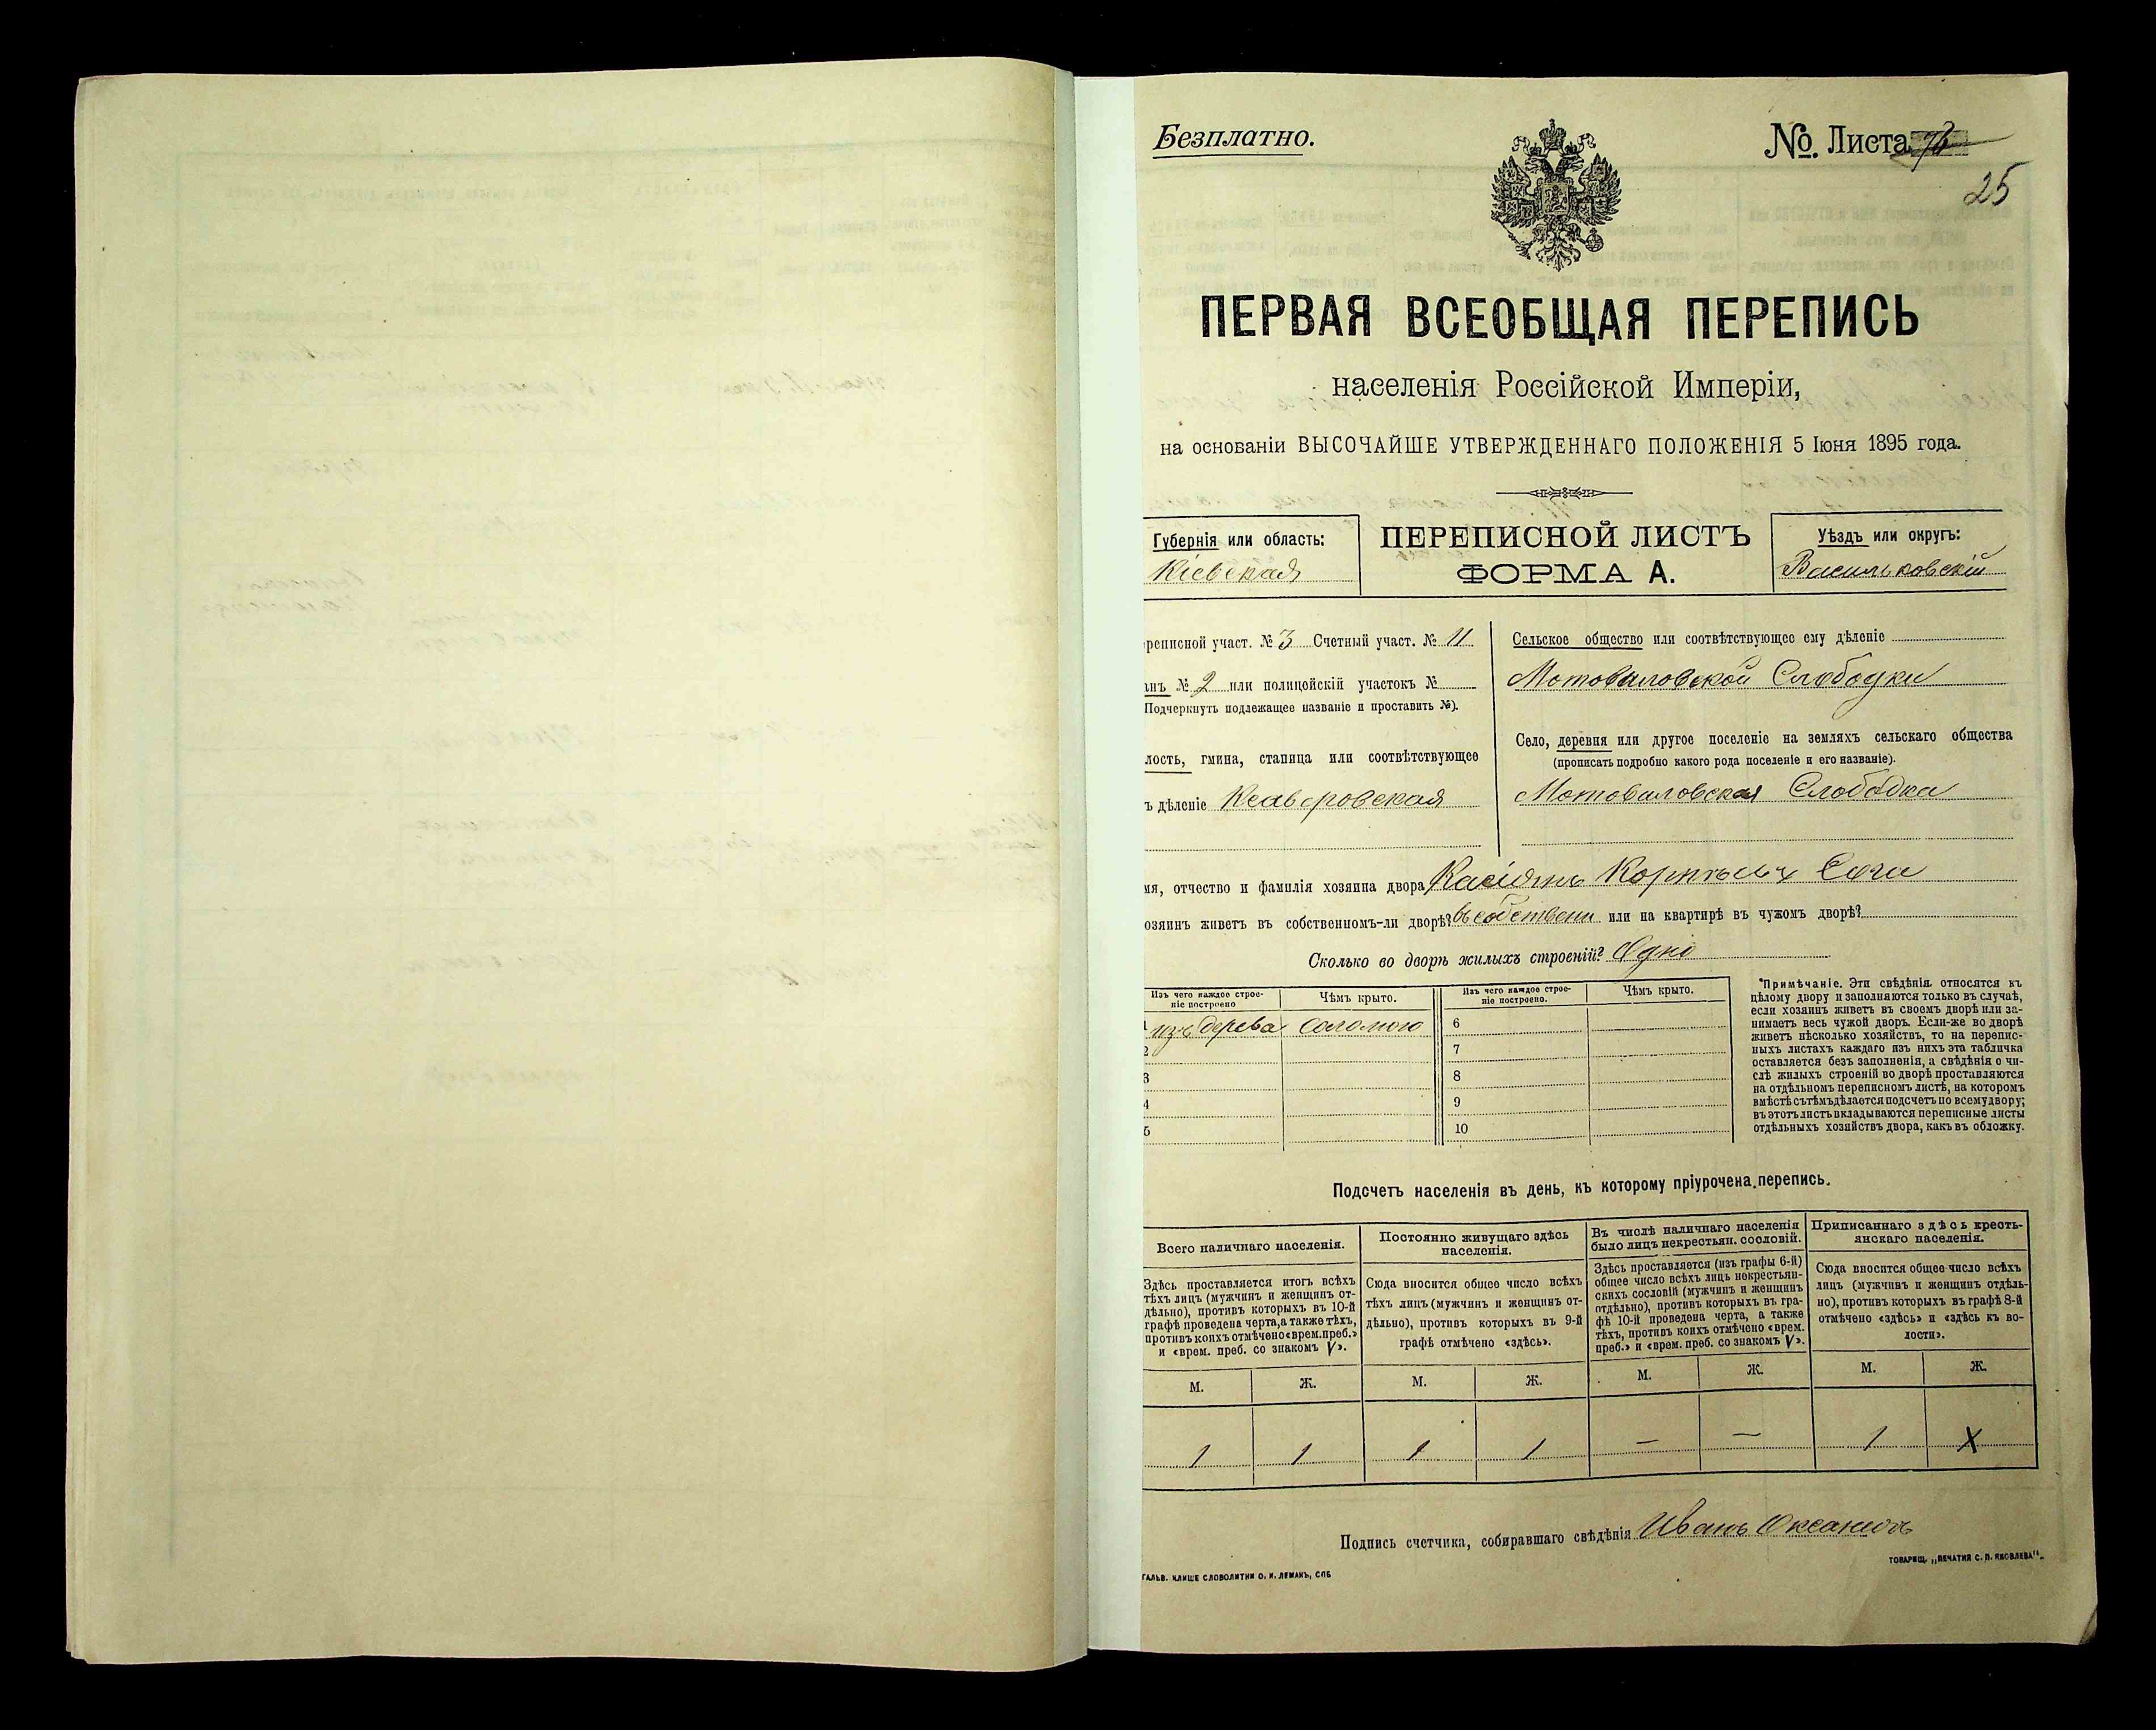 Безплатно.
№. Листа
25
ПЕРВАЯ ВСЕОБЩАЯ ПЕРЕПИСЬ
населенія Россійской Имперіи,
на основаніи ВЫСОЧАЙШЕ УТВЕРЖДЕННАГО ПОЛОЖЕНІЯ 5 Іюня 1895 года.
Губернія или область:
Кіевская
ПЕРЕПИСНОЙ ЛИСТЪ
ФОРМА А.
Уѣздъ или округъ:
Васильковскій
реписной участ. № 3 Счетный участ. № 11
анъ № 2 или полицейскій участокъ №
Подчеркнуть подлежащее названіе и проставить №).
лость, гмина, станица или соотвѣтствующее
ъ дѣленіе Ксаверовская
Сельское общество или соотвѣтствующее ему дѣленіе
Мотовиловской Слободки
Село, деревня или другое поселеніе на земляхъ сельскаго общества
(прописать подробно какого рода поселеніе и его названіе).
Мотовиловская Слободка
мя, отчество и фамилія хозяина двора Касіянъ
озяинъ живетъ въ собственномъ-ли дворѣ? въ собствени или на квартирѣ въ чужомъ дворѣ?
Сколько во дворѣ жилыхъ строеній? Одно
Изъ чего каждое строе-
ніе построено
Чѣмъ крыто.
Изъ чего каждое строе-
ніе построено.
Чѣмъ крыто.
1 изъ дерева соломою 6
2 7
3 8
4 9
5 10
*Примѣчаніе. Эти свѣдѣнія относятся къ
цѣлому двору и заполняются только въ случаѣ,
если хозяинъ живетъ въ своемъ дворѣ или за-
нимаетъ весь чужой дворъ. Если-же во дворѣ
живетъ нѣсколько хозяйствъ, то на перепис-
ныхъ листахъ каждаго изъ нихъ эта табличка
оставляется безъ заполненія, а свѣдѣнія о чи-
слѣ жилыхъ строеній во дворѣ проставляются
на отдѣльномъ переписномъ листѣ, на которомъ
вмѣстѣ съ тѣмъ дѣлается подсчетъ по всему двору;
въ этотъ листъ вкладываются переписные листы
отдѣльныхъ хозяйствъ двора, какъ въ обложку.
Подсчетъ населенія въ день, къ которому пріурочена перепись.
Всего наличнаго населенія.
Здѣсь проставляется итогъ всѣхъ
тѣхъ лицъ (мужчинъ и женщинъ от-
дѣльно), противъ которыхъ въ 10-й
графѣ проведена черта, а также тѣхъ,
противъ коихъ отмѣчено «врем. преб.»
и «врем. преб. со знакомъ V».
Постоянно живущаго здѣсь
населенія.
Сюда вносится общее число всѣхъ
тѣхъ лицъ (мужчинъ и женщинъ от-
дѣльно), противъ которыхъ въ 9-й
графѣ отмѣчено «здѣсь».
Въ числѣ наличнаго населенія
было лицъ некрестьян. сословій.
Здѣсь проставляется (изъ графы 6-й)
общее число всѣхъ лицъ некрестьян-
скихъ сословій (мужчинъ и женщинъ
отдѣльно), противъ которыхъ въ гра-
фѣ 10-й проведена черта, а также
тѣхъ, противъ коихъ отмѣчено «врем.
преб.» и «врем. преб. со знакомъ V».
Приписаннаго здѣсь кресть-
янскаго населенія.
Сюда вносится общее число всѣхъ
лицъ (мужчинъ и женщинъ отдѣль-
но), противъ которыхъ въ графѣ 8-й
отмѣчено «здѣсь» и «здѣсь къ во-
лости».
М. Ж. М. Ж. М. Ж. М. Ж.
1 1 1 1 — — 1 X
Подпись счетчика, собиравшаго свѣдѣнія Иванъ
ТОВАРИЩ. „ПЕЧАТНЯ С. П. ЯКОВЛЕВА".
ГАЛЬВ. КЛИШЕ СЛОВОЛИТНИ О. И. ЛЕМАНЪ, СПБ